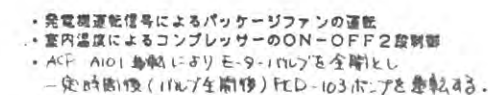 ・発電機運転信号によるパッケージファンの運転
・室内温度によるコンプレッサーのON-OFF2段制御
・ACP A101 起動によりモーターバルブを全開とし
一定時間後(バルブ全開後) PCD-103ポンプを運転する。